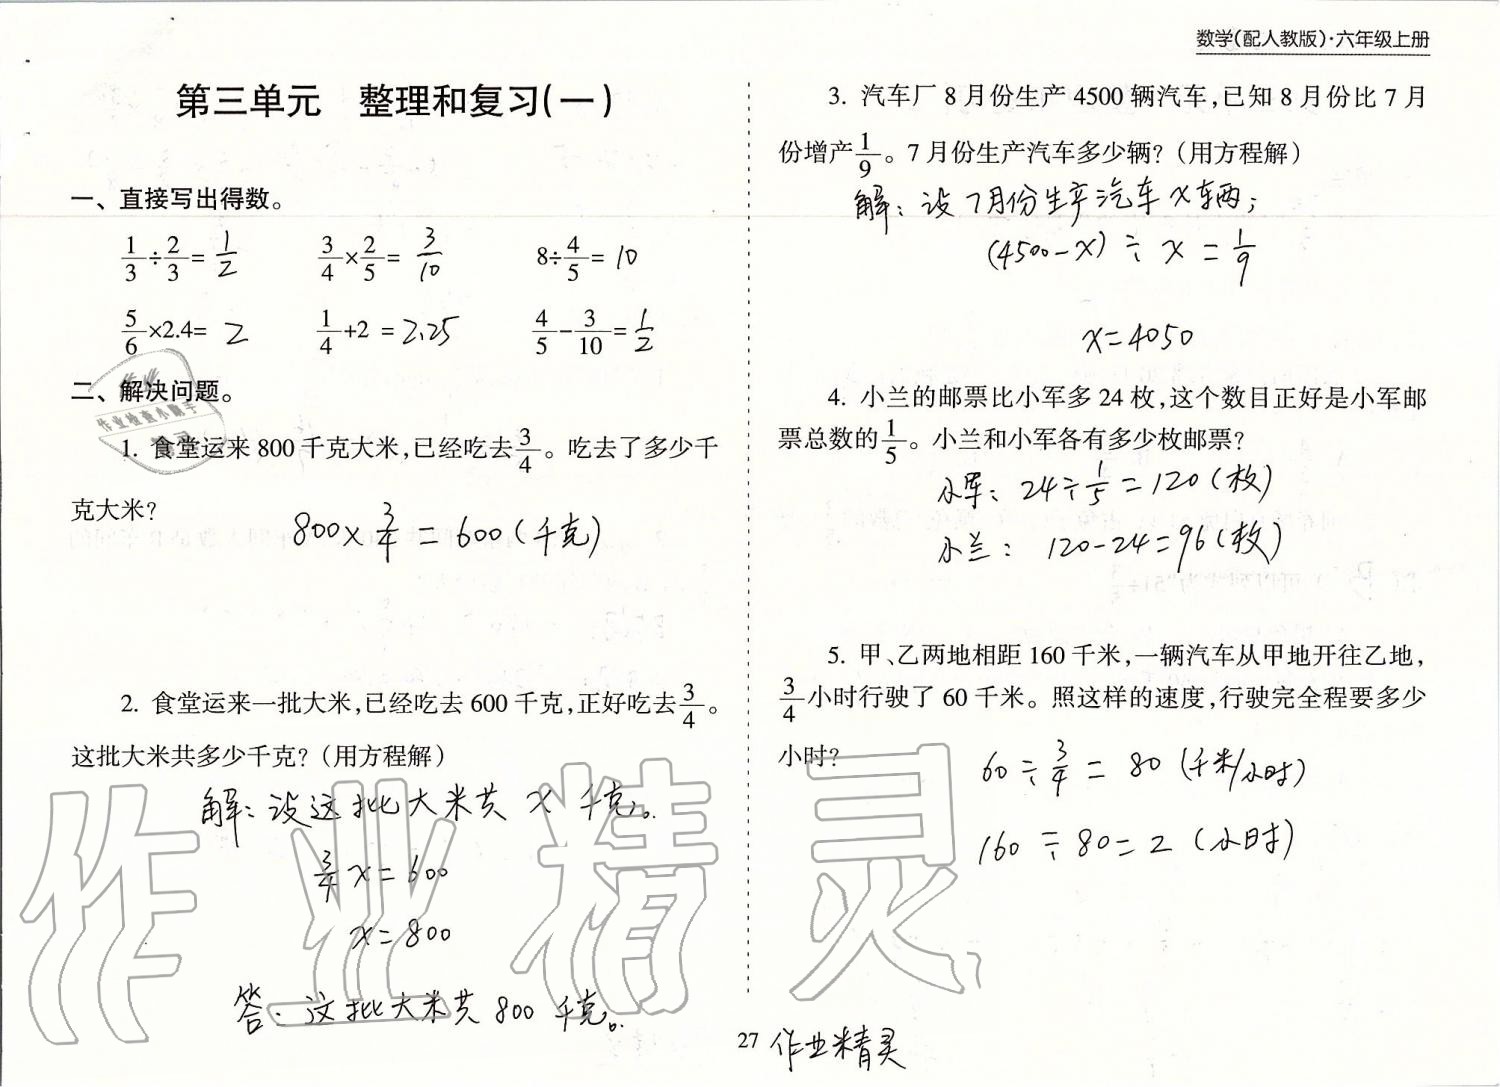 数学(配人教版)·六年级上册
第三单元 整理和复习(一)
一、直接写出得数。
1/3÷2/3=1/2 3/4×2/5=3/10 8÷4/5=10
5/6×2.4=2 1/4+2=2.25 4/5-3/10=1/2
二、解决问题。
1. 食堂运来 800 千克大米,已经吃去3/4。吃去了多少千
克大米?
800×3/4=600(千克)
2. 食堂运来一批大米,已经吃去 600 千克,正好吃去3/4。
这批大米共多少千克?(用方程解)
解:设这批大米共 x 千克。
3/4x=600
x=800
答:这批大米共 800 千克。
3. 汽车厂 8 月份生产 4500 辆汽车,已知 8 月份比 7 月
份增产1/9。7 月份生产汽车多少辆?(用方程解)
解:设7月份生产汽车x辆;
(4500-x)÷x=1/9
x=4050
4. 小兰的邮票比小军多 24 枚,这个数目正好是小军邮
票总数的1/5。小兰和小军各有多少枚邮票?
小军:24÷1/5=120(枚)
小兰:120-24=96(枚)
5. 甲、乙两地相距 160 千米,一辆汽车从甲地开往乙地,
3/4小时行驶了 60 千米。照这样的速度,行驶完全程要多少
小时?
60÷3/4=80(千米/小时)
160÷80=2(小时)
27
作业精灵
作业精灵
作业
作业检查小助手